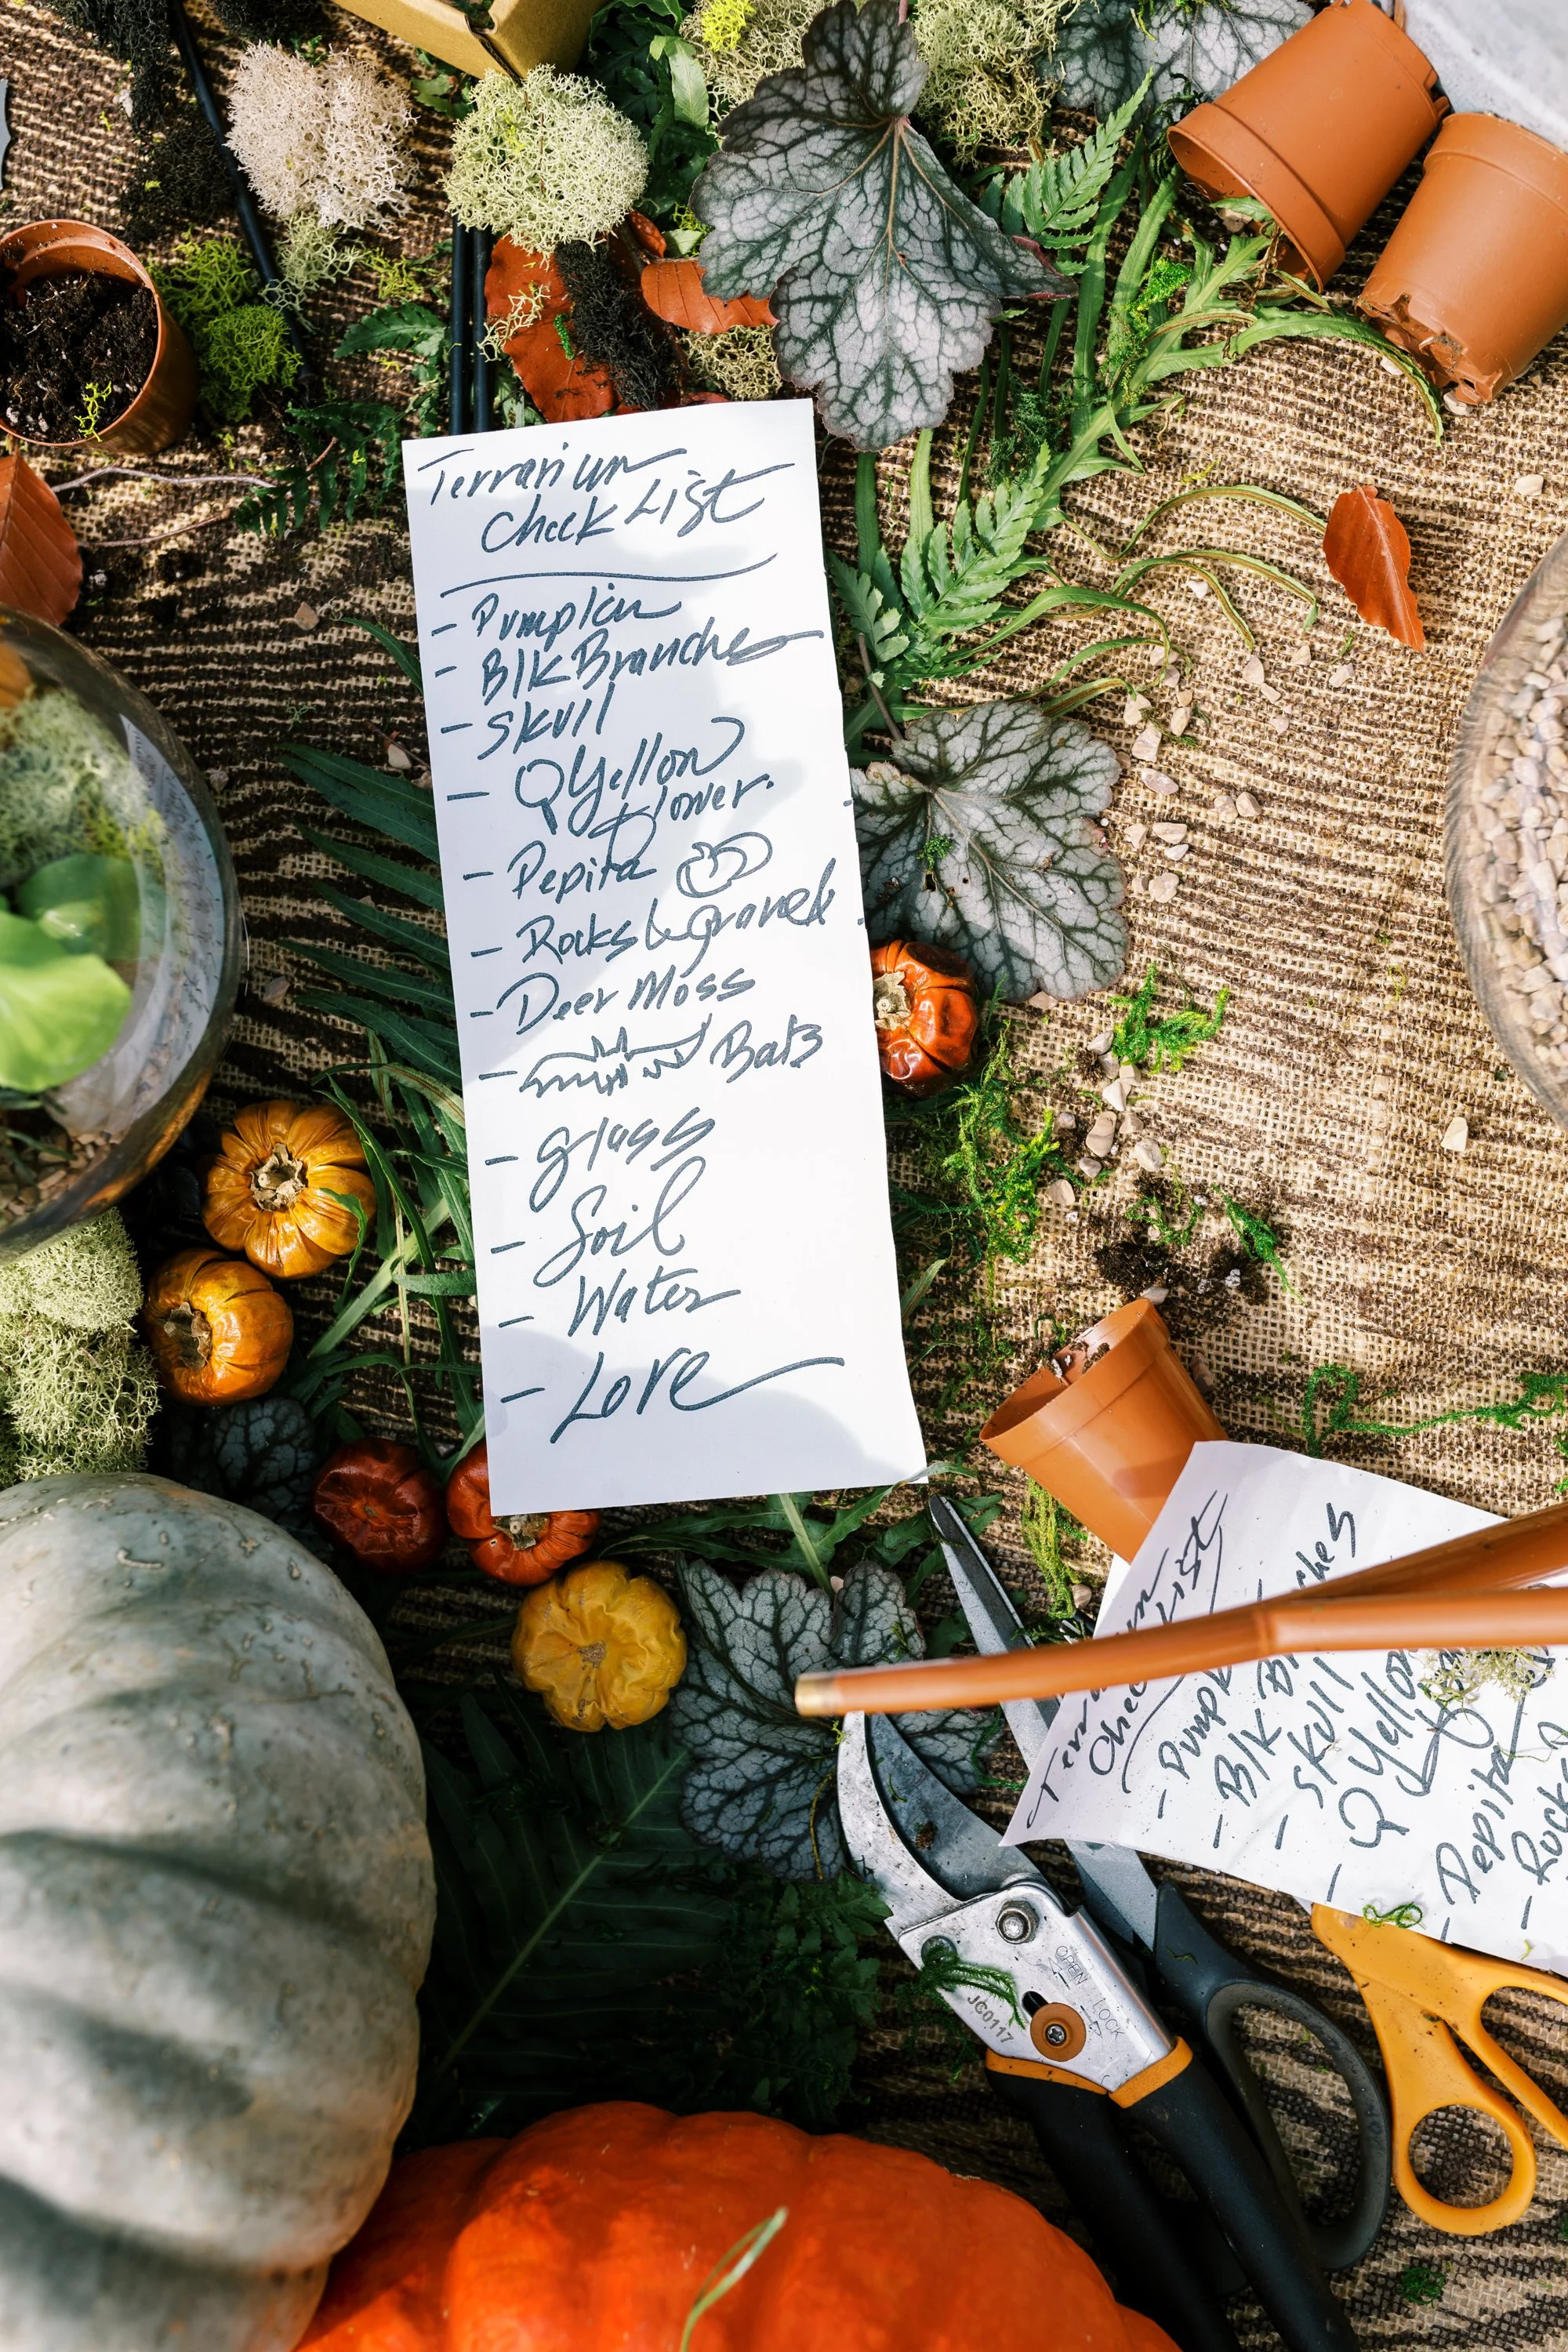 Terrarium
Check List
- Pumpkin
- Blk Branches
- Skull
- Q Yellow
Flower.
- Pepita
- Rocks & Gravel
- Deer Moss
- Bats
- glass
- Soil
- Water
- Love
List
- Pump
- Blk B ches
- Skull
- Q Yellow
- Pepita
- Rock
OPEN
LOCK
JC0117